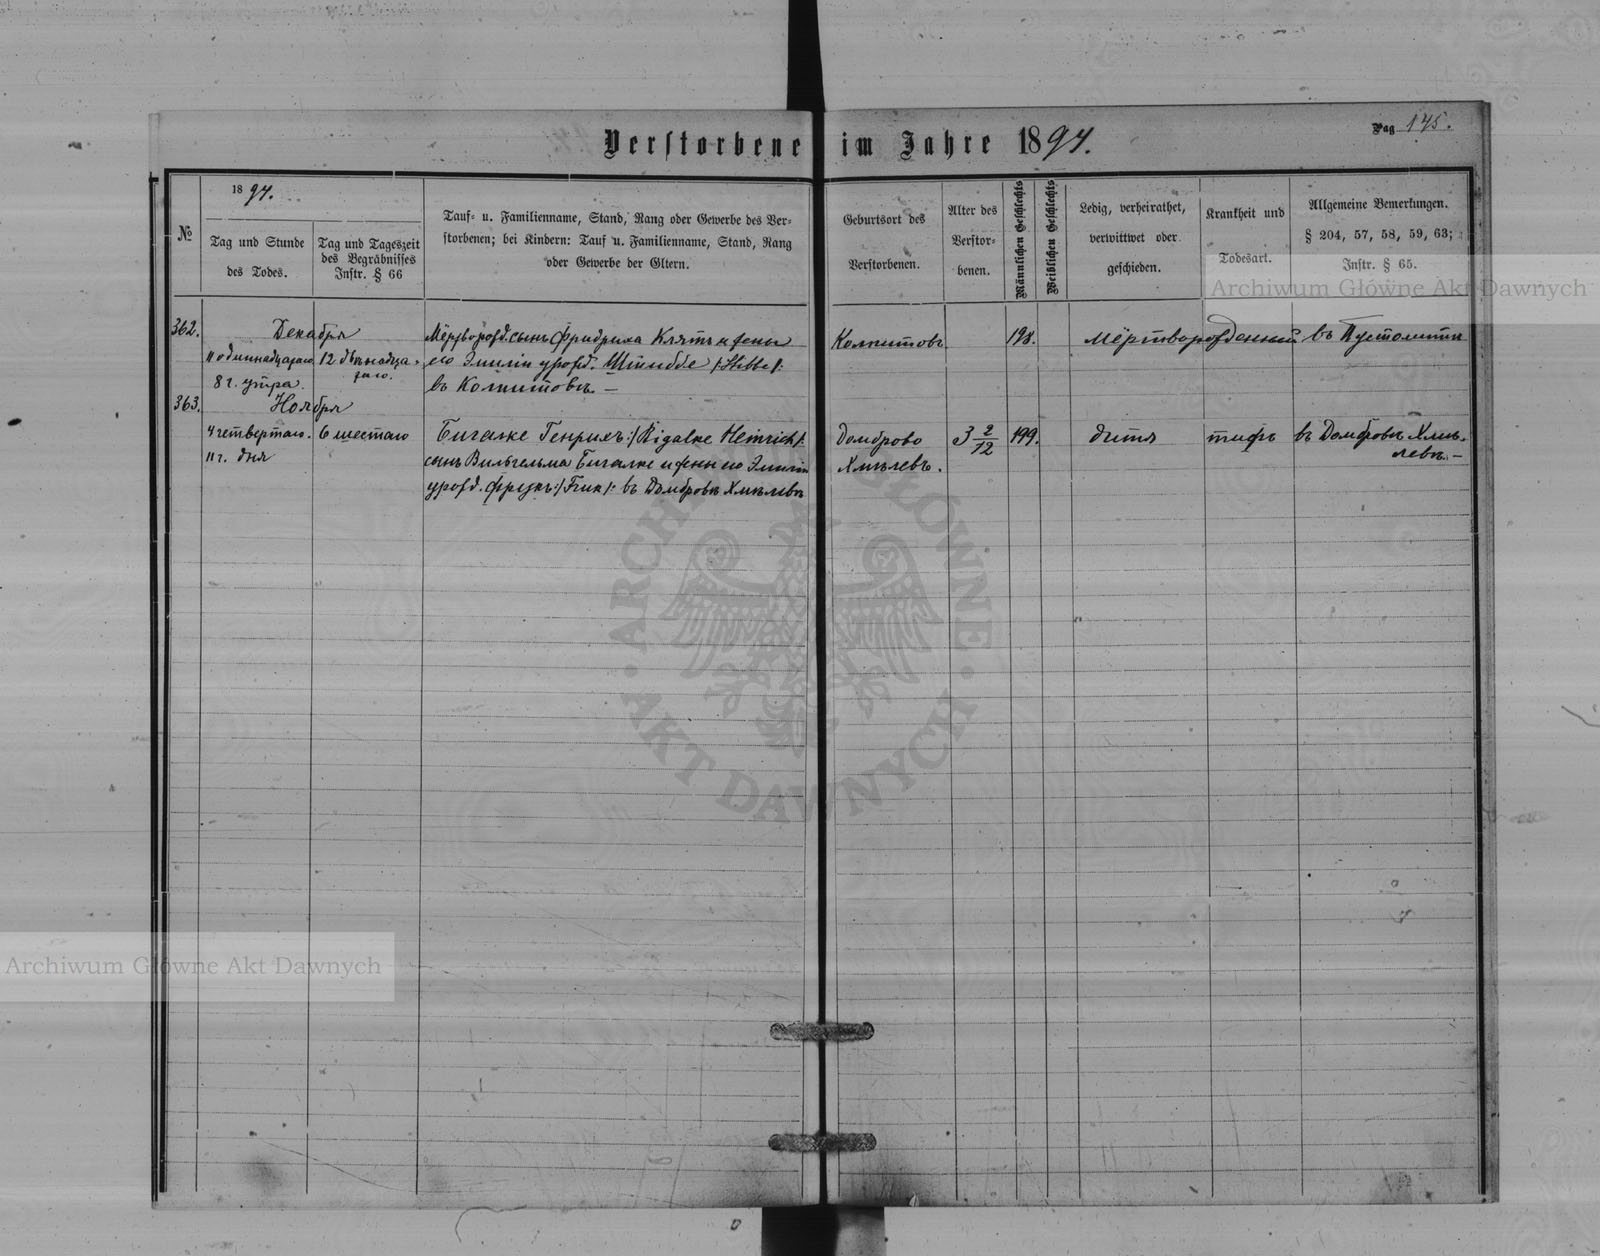 Verstorbene im Jahre 1894.
Pag 175.
№
1894.
Tag und Stunde
des Todes.
Tag und Tageszeit
des Begräbnisses
Instr. § 66
Tauf- u. Familienname, Stand, Rang oder Gewerbe des Ver-
storbenen; bei Kindern: Tauf u. Familienname, Stand, Rang
oder Gewerbe der Eltern.
Geburtsort des
Verstorbenen.
Alter des
Verstor-
benen.
Männlichen Geschlechts
Weiblichen Geschlechts
Ledig, verheirathet,
verwittwet oder
geschieden.
Krankheit und
Todesart.
Allgemeine Bemerkungen.
§ 204, 57, 58, 59, 63;
Instr. § 65.
362.
Декабря
11 одиннадцатаго
8 г. утра
12 двѣнадца-
таго.
Мёртворожд. сынъ Фридриха и жены
его Эмиліи урожд. Штиббе /:Stibbe/:
въ
198.
мёртворожденный
363.
Ноября
4 четвертаго.
11 г. дня
6 шестаго
Бигалке Генрихъ:/ Bigalke Heinrich/:
сынъ Вильгельма Бигалке и жены его Эмиліи
урожд. въ Домбровѣ Хмѣлевѣ
Домброво
Хмѣлевъ.
3 2/12
199.
дитя
тифъ
въ Домбровѣ Хмѣ-
левѣ.—
Archiwum Główne Akt Dawnych
Archiwum Główne Akt Dawnych
ARCHIWUM GŁÓWNE · AKT DAWNYCH ·